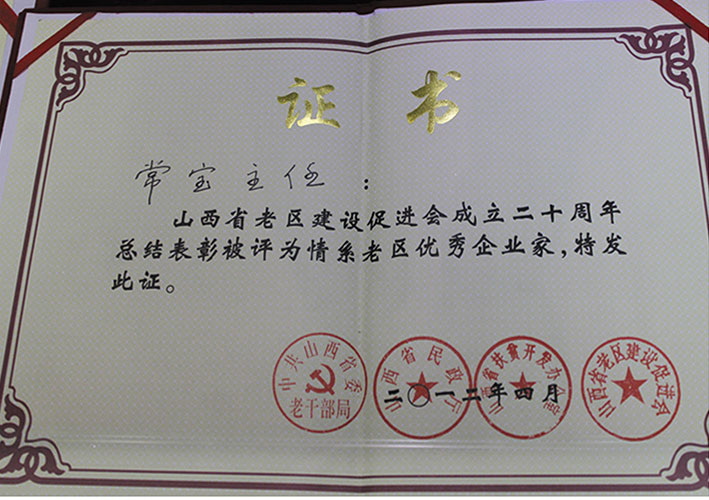 证书
常宝主任：
山西省老区建设促进会成立二十周年
总结表彰被评为情系老区优秀企业家，特发
此证。
中共山西省委
老干部局
山西省民政厅
山西省扶贫开发办公室
山西省老区建设促进会
二〇一二年四月